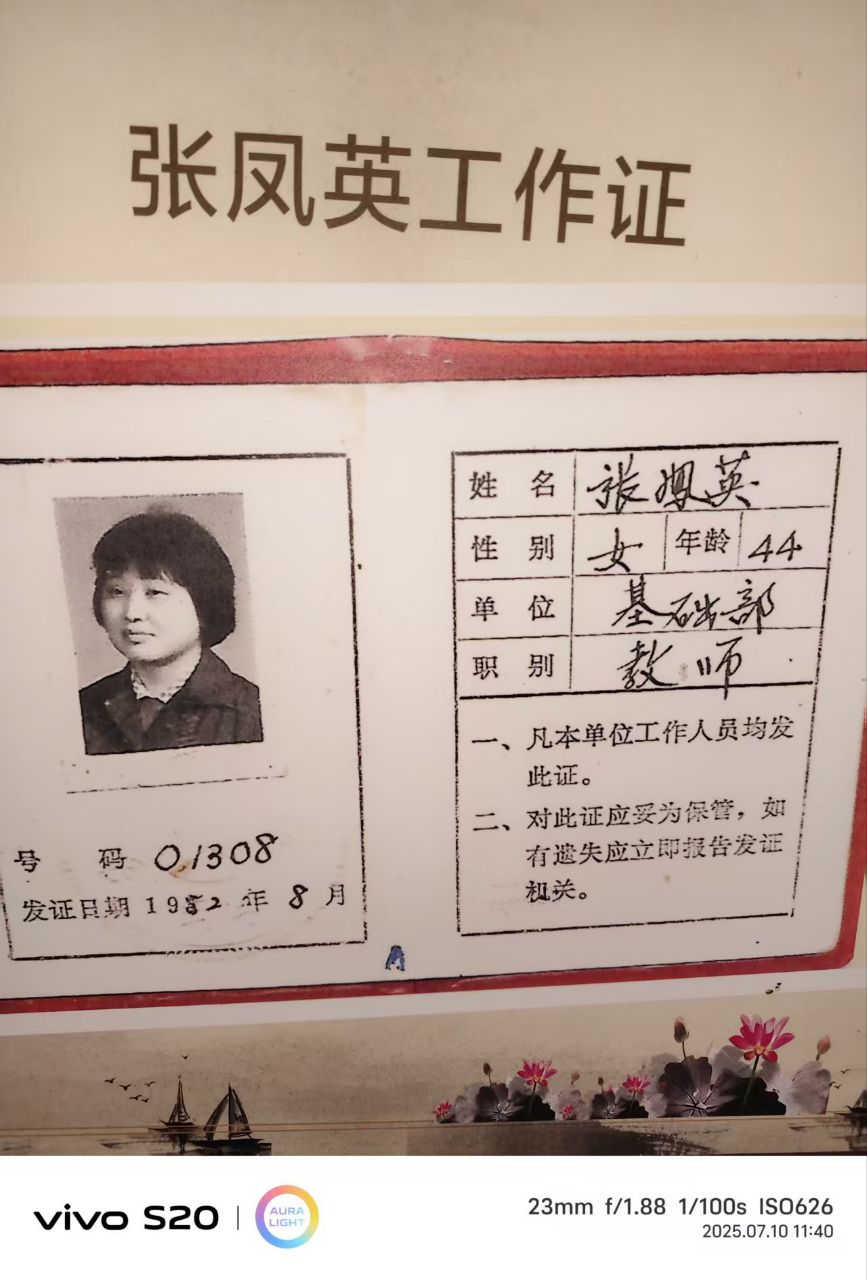 张凤英工作证
姓 名 张鳳英
性 别 女 年龄 44
单 位 基础部
职 别 教师
一、凡本单位工作人员均发
此证。
二、对此证应妥为保管，如
有遗失应立即报告发证
机关。
号 码 01308
发证日期 1982 年 8 月
A
vivo S20
AURA
LIGHT
23mm f/1.88 1/100s ISO626
2025.07.10 11:40